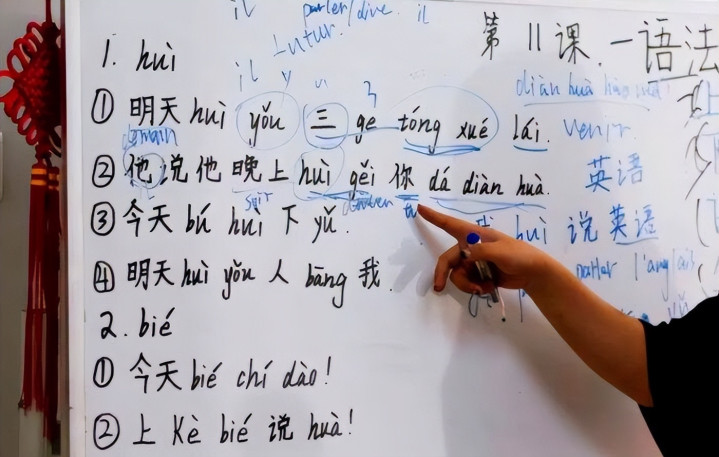 il parler/dire il
futur.
第 11 课. 一语法
1. huì
il y
diàn huà hào mǎ
① 明天 huì yǒu 三 ge tóng xué lái. venir.
demain
② 他说他晚上 huì gěi 你 dá diàn huà. 英语
il soir tu
③ 今天 bú huì 下 yǔ. huì 说英语
parler l'anglais
④ 明天 huì yǒu 人 bāng 我.
2. bié
① 今天 bié chí dào!
② 上 Kè bié 说 huà!